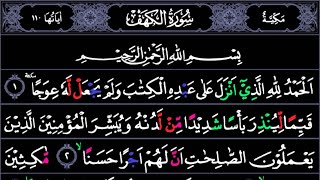 مَكِّيَّةٌ سُورَةُ الْكَهْفِ اٰيَاتُهَا ١١٠
بِسْمِ اللّٰهِ الرَّحْمٰنِ الرَّحِيْمِ
اَلْحَمْدُ لِلّٰهِ الَّذِيْٓ اَنْزَلَ عَلٰى عَبْدِهِ الْكِتٰبَ وَلَمْ يَجْعَلْ لَّهٗ عِوَجًا ١ سكتة
قَيِّمًا لِّيُنْذِرَ بَاْسًا شَدِيْدًا مِّنْ لَّدُنْهُ وَيُبَشِّرَ الْمُؤْمِنِيْنَ الَّذِيْنَ
يَعْمَلُوْنَ الصّٰلِحٰتِ اَنَّ لَهُمْ اَجْرًا حَسَنًا ٢ مّٰكِثِيْنَ